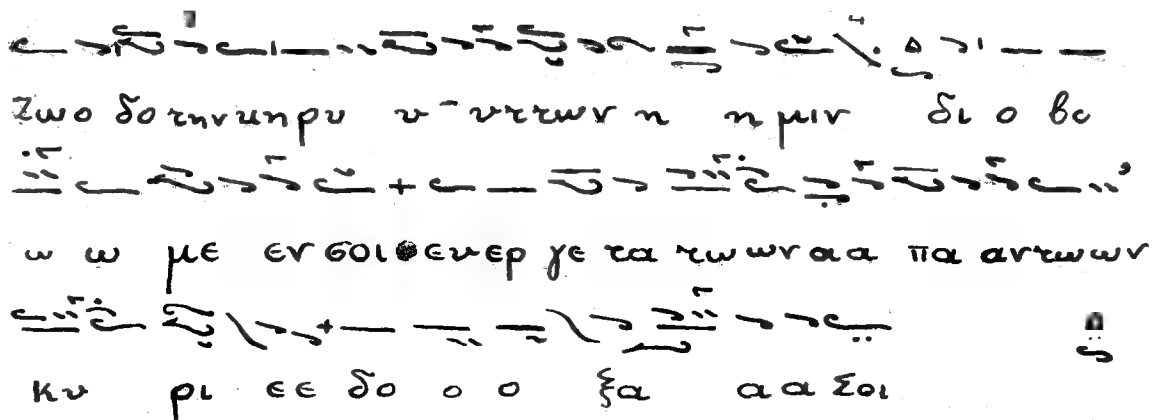 Ζωο δο την κη ρυ υ - υτ των η η μιν δι ο βο
ω ω με εν σοι ευερ γε τα τω ων α α πα αν τω ων
κυ ρι ε ε δο ο ο ξα α α Σοι